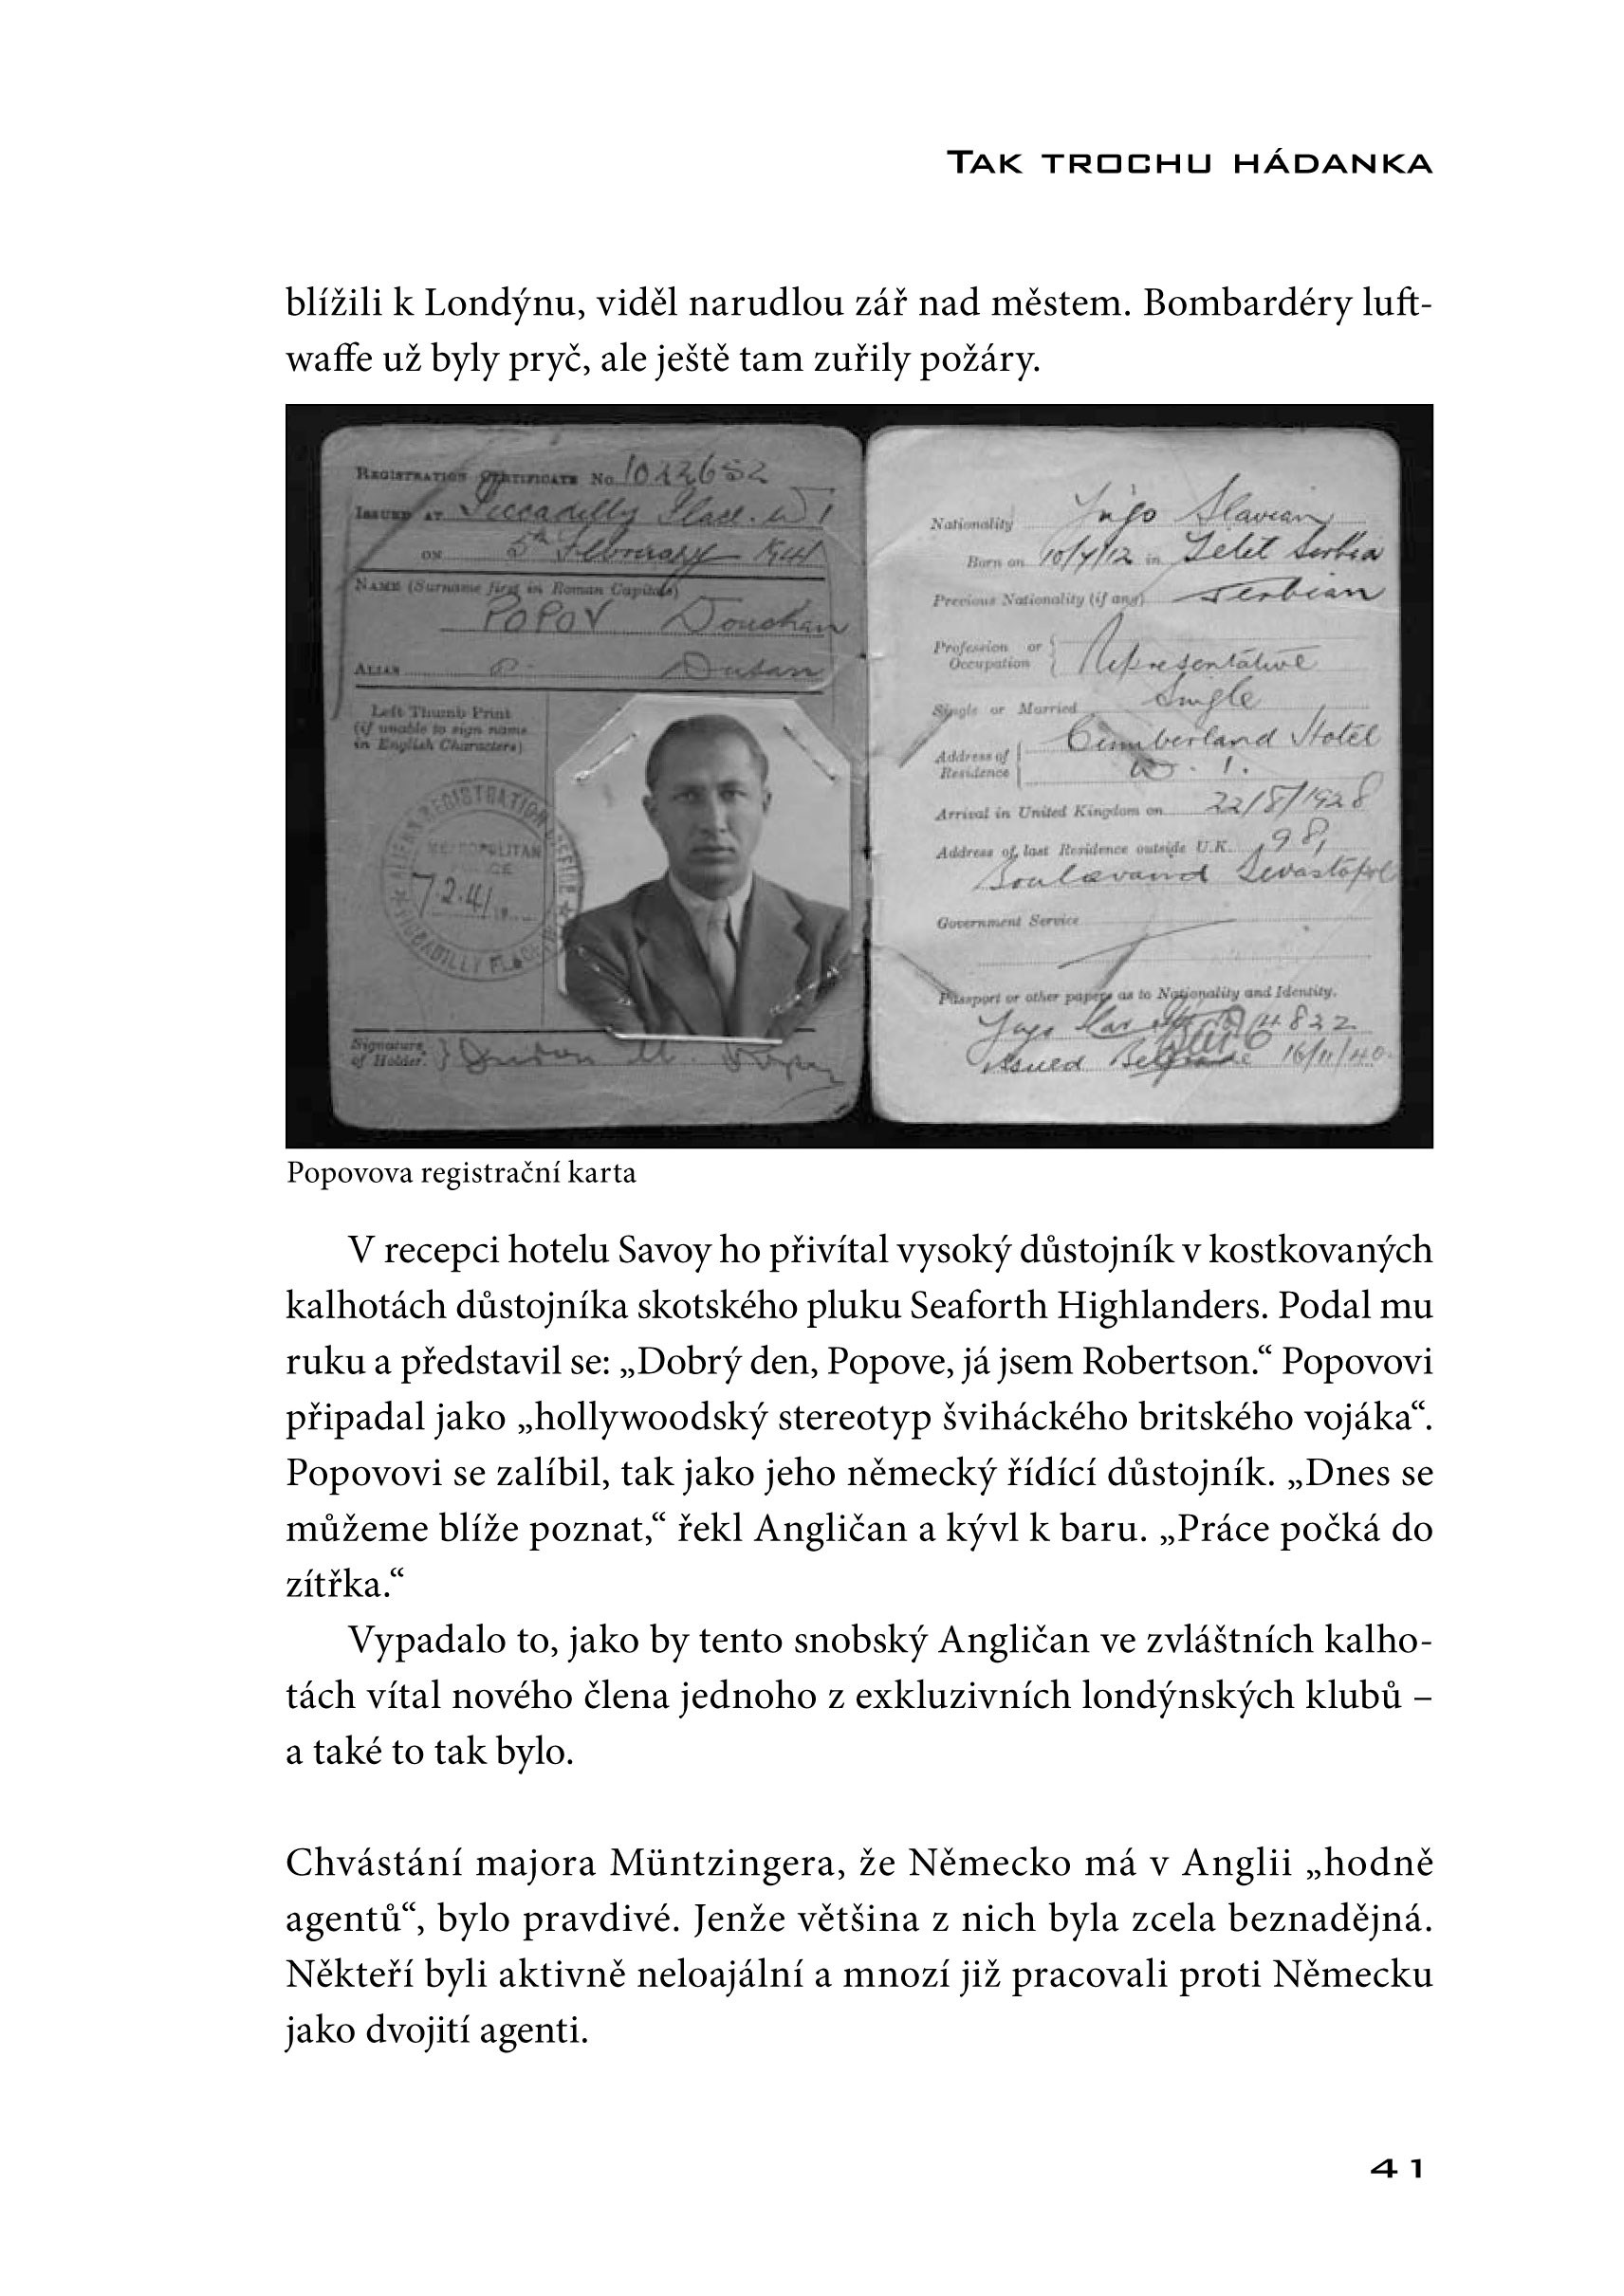 Tak trochu hádanka
blížili k Londýnu, viděl narudlou zář nad městem. Bombardéry luft-
waffe už byly pryč, ale ještě tam zuřily požáry.
Registration Certificate No. 1022652
Issued at Piccadilly Place. W1
on 5th February 1941
Name (Surname first in Roman Capitals)
POPOV Douchan
Alias Dusan
Left Thumb Print
(if unable to sign name
in English Characters)
ALIENS REGISTRATION OFFICE
METROPOLITAN
7.2.41
PICCADILLY PLACE
Signature
of Holder.
Nationality Yugo Slavian
Born on 10/7/12 in Titel Serbia
Previous Nationality (if any) Serbian
Profession or
Occupation
Representative
Single or Married Single
Address of
Residence
Cumberland Hotel
W. 1.
Arrival in United Kingdom on 22/8/1928
Address of last Residence outside U.K. 98,
Boulavard Sevastopol
Government Service
Passport or other papers as to Nationality and Identity.
Yugo
issued Belgrade 16/11/40
Popovova registrační karta
V recepci hotelu Savoy ho přivítal vysoký důstojník v kostkovaných
kalhotách důstojníka skotského pluku Seaforth Highlanders. Podal mu
ruku a představil se: „Dobrý den, Popove, já jsem Robertson.“ Popovovi
připadal jako „hollywoodský stereotyp šviháckého britského vojáka“.
Popovovi se zalíbil, tak jako jeho německý řídící důstojník. „Dnes se
můžeme blíže poznat,“ řekl Angličan a kývl k baru. „Práce počká do
zítřka.“
Vypadalo to, jako by tento snobský Angličan ve zvláštních kalho-
tách vítal nového člena jednoho z exkluzivních londýnských klubů –
a také to tak bylo.
Chvástání majora Müntzingera, že Německo má v Anglii „hodně
agentů“, bylo pravdivé. Jenže většina z nich byla zcela beznadějná.
Někteří byli aktivně neloajální a mnozí již pracovali proti Německu
jako dvojití agenti.
41